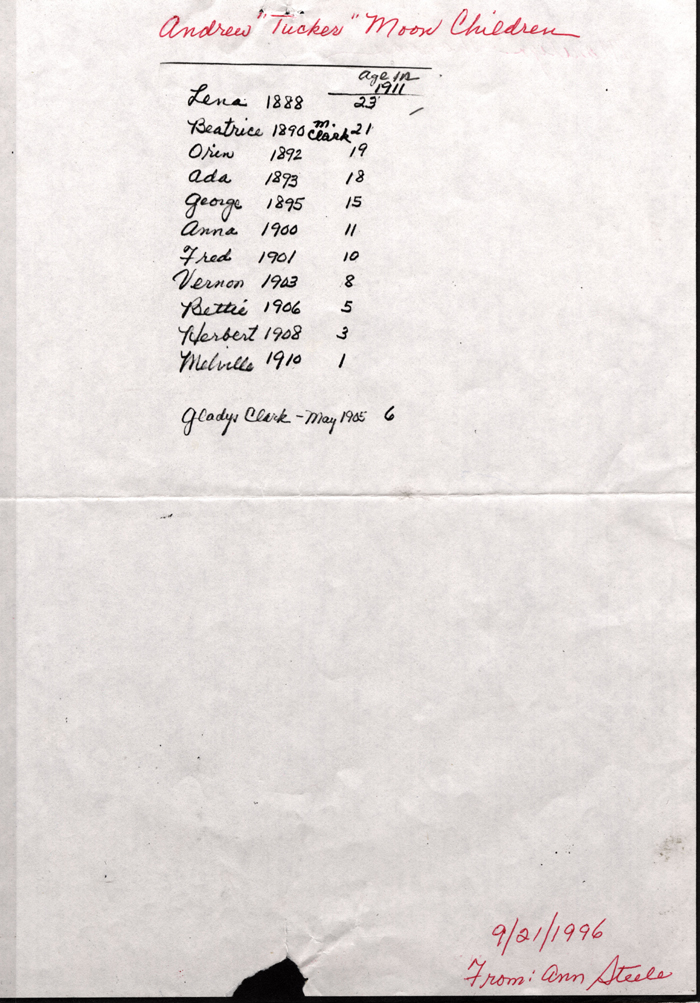 Andrew "Tucker" Moon Children
age in
1911
Lena 1888 23
Beatrice 1890 m. Clark 21
Oren 1892 19
Ada 1893 18
George 1895 15
Anna 1900 11
Fred 1901 10
Vernon 1903 8
Bettie 1906 5
Herbert 1908 3
Melville 1910 1
Gladys Clark - May 1905 6
9/21/1996
From: Ann Steele